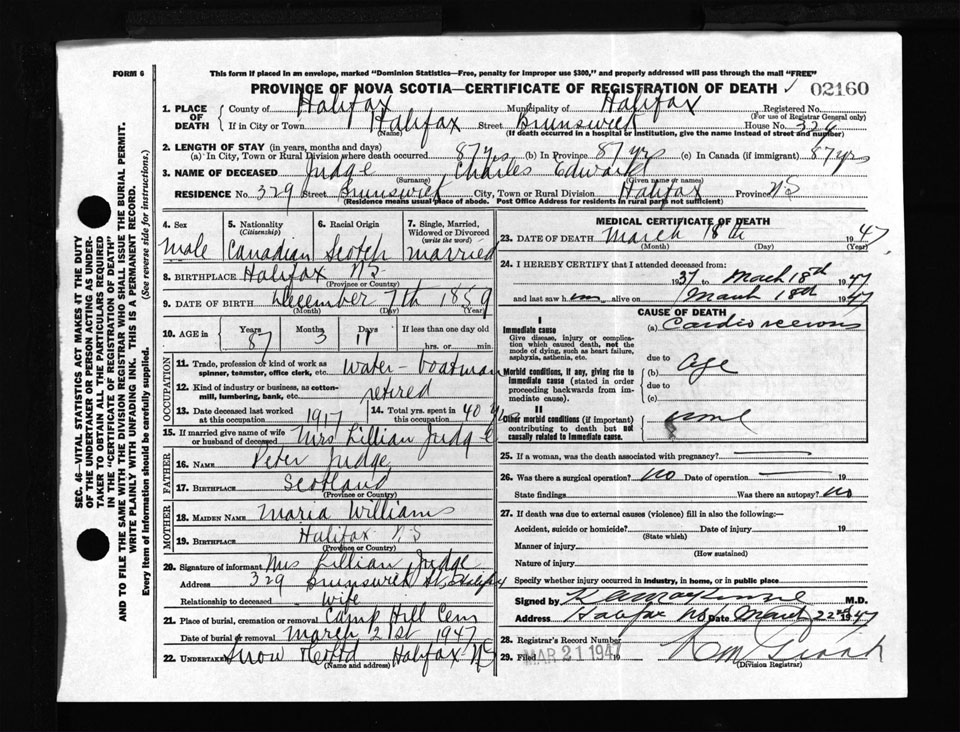 FORM 6
This form if placed in an envelope, marked "Dominion Statistics—Free, penalty for improper use $300," and properly addressed will pass through the mail "FREE"
PROVINCE OF NOVA SCOTIA—CERTIFICATE OF REGISTRATION OF DEATH
02160
SEC. 46—VITAL STATISTICS ACT MAKES IT THE DUTY
OF THE UNDERTAKER OR PERSON ACTING AS UNDER-
TAKER TO OBTAIN ALL THE PARTICULARS REQUIRED
IN THE "CERTIFICATE OF REGISTRATION OF DEATH"
AND TO FILE THE SAME WITH THE DIVISION REGISTRAR WHO SHALL ISSUE THE BURIAL PERMIT.
WRITE PLAINLY WITH UNFADING INK. THIS IS A PERMANENT RECORD.
Every item of information should be carefully supplied. (See reverse side for instructions.)
1. PLACE OF DEATH
County of Halifax Municipality of Halifax Registered No.
(For use of Registrar General only)
If in City or Town Halifax Street Brunswick House No. 329
(Name) (If death occurred in a hospital or institution, give the name instead of street and number)
2. LENGTH OF STAY (in years, months and days)
(a) In City, Town or Rural Division where death occurred 87 yrs (b) In Province 87 yrs (c) In Canada (if immigrant) 87 yrs
3. NAME OF DECEASED Judge Charles Edward
(Surname) (Given name or names)
RESIDENCE No. 329 Street Brunswick City, Town or Rural Division Halifax Province NS
(Residence means usual place of abode. Post Office Address for residents in rural parts not sufficient)
4. Sex
Male
5. Nationality
(Citizenship)
Canadian
6. Racial Origin
Scotch
7. Single, Married,
Widowed or Divorced
(write the word)
married
8. BIRTHPLACE Halifax NS
9. DATE OF BIRTH December 7th 1859
(Month) (Day) (Year)
10. AGE in Years Months Days If less than one day old
87 3 11 hrs. or min.
OCCUPATION
11. Trade, profession or kind of work as
spinner, teamster, office clerk, etc. water-boatman
12. Kind of industry or business, as cotton-
mill, lumbering, bank, etc. retired
13. Date deceased last worked
at this occupation 1917
14. Total yrs. spent in
this occupation 40 yrs
15. If married give name of wife
or husband of deceased Mrs Lillian Judge
FATHER
16. NAME Peter Judge
17. BIRTHPLACE Scotland
(Province or Country)
MOTHER
18. MAIDEN NAME Maria Williams
19. BIRTHPLACE Halifax NS
(Province or Country)
20. Signature of informant Mrs Lillian Judge
Address 329 Brunswick St, Halifax
Relationship to deceased wife
21. Place of burial, cremation or removal Camp Hill Cem
Date of burial or removal March 21st 1947
22. UNDERTAKER Snow Halifax NS
(Name and address)
MEDICAL CERTIFICATE OF DEATH
23. DATE OF DEATH March 18th 1947
(Month) (Day) (Year)
24. I HEREBY CERTIFY that I attended deceased from:
1937 to March 18th 1947
and last saw him alive on March 18th 1947
CAUSE OF DEATH
I
Immediate cause
Give disease, injury or complica-
tion which caused death, not the
mode of dying, such as heart failure,
asphyxia, asthenia, etc.
(a) Cardio
due to
Morbid conditions, if any, giving rise to
immediate cause (stated in order
proceeding backwards from im-
mediate cause).
(b) age
due to
(c)
II
Other morbid conditions (if important)
contributing to death but not
causally related to immediate cause.
none
25. If a woman, was the death associated with pregnancy?
26. Was there a surgical operation? no Date of operation 19
State findings Was there an autopsy? no
27. If death was due to external causes (violence) fill in also the following:—
Accident, suicide or homicide? Date of injury 19
(State which)
Manner of injury
(How sustained)
Nature of injury
Specify whether injury occurred in industry, in home, or in public place
Signed by M.D.
Address Halifax NS Date March 22nd 1947
28. Registrar's Record Number
29. Filed MAR 21 1947 19
(Division Registrar)